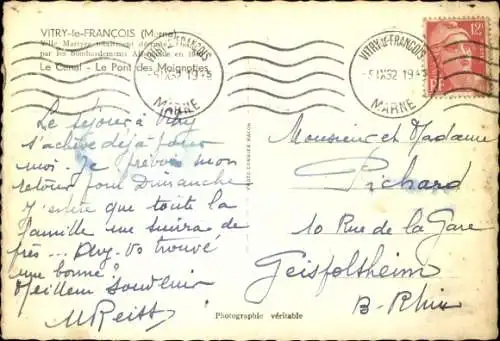 VITRY-le-FRANÇOIS (Marne)
Ville Martyre totalement détruite
par les bombardements Allemands en 1940
Le Canal - Le Pont des Maignottes
VITRY-LE-FRANÇOIS
MARNE
VITRY-LE-FRANÇOIS
MARNE
12F
Le séjour à Vitry
s'achève déjà pour
moi. Je prévois mon
retour pour Dimanche
J'espère que toute la
famille me suivra de
près ... Avez-vs trouvé
une bonne?
Meilleur souvenir
M Reiss
Monsieur et Madame
Richard
10 Rue de la Gare
Geispolsheim
B-Rhin
Photographie véritable